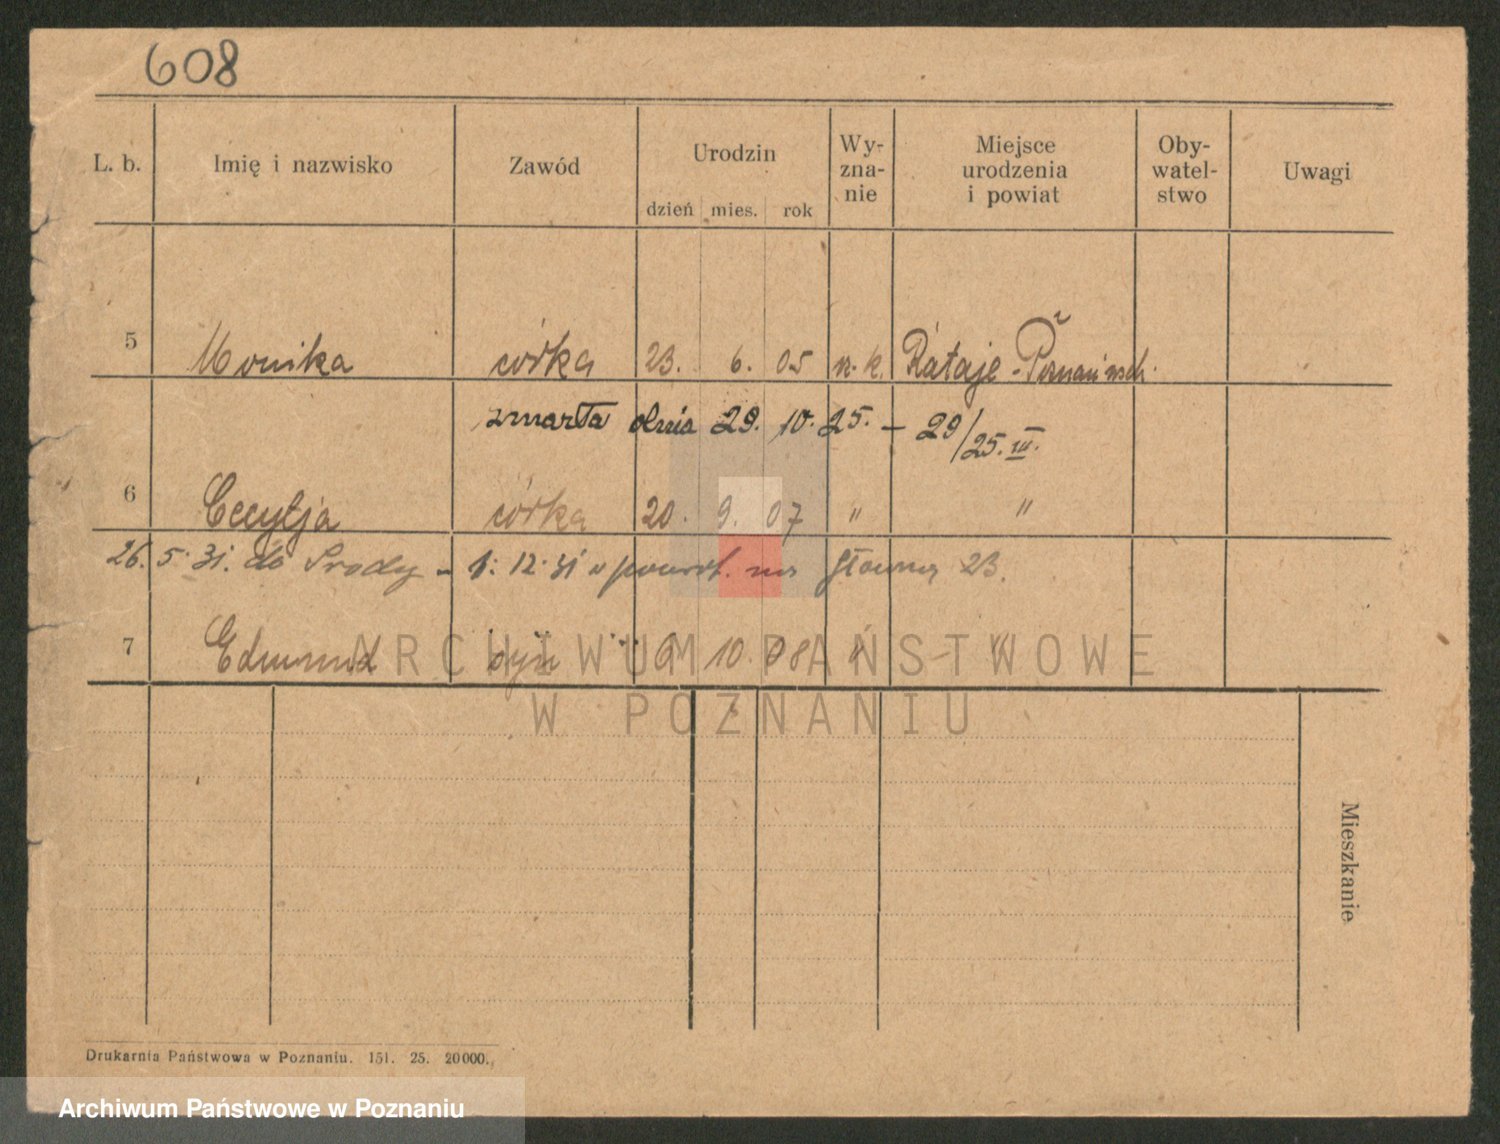 608
L. b. Imię i nazwisko Zawód Urodzin dzień mies. rok Wy-zna-nie Miejsce urodzenia i powiat Oby-watel-stwo Uwagi
5 Monika córka 23. 6. 05 r. k. Rataje - Poznań wsch.
zmarła dnia 29. 10. 25. - 29/25. III.
6 Cecylja córka 20. 9. 07 " "
26. 5. 31. do Środy - 1. 12. 31 powrót. na Główną 23.
7 Edmund syn 9 10. 08 " "
Mieszkanie
Drukarnia Państwowa w Poznaniu. 151. 25. 20000.
ARCHIWUM PAŃSTWOWE
W POZNANIU
Archiwum Państwowe w Poznaniu